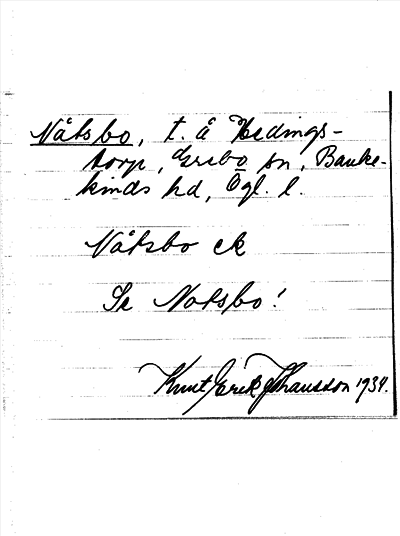 Nåtsbo, t. å Hedings-
torp, Grebo sn, Banke-
kinds hd, Ögl. l.
Nåtsbo ek
Se Notsbo!
Knut Erik Johansson 1934.